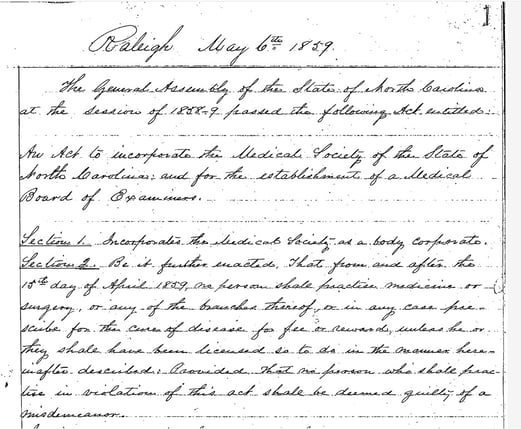 1
Raleigh May 6th 1859.
The General Assembly of the State of North Carolina
at the session of 1858-9 passed the following Act entitled:
An Act to incorporate the Medical Society of the State of
North Carolina: and for the establishment of a Medical
Board of Examiners.
Section 1. Incorporates the Medical Society as a body corporate.
Section 2. Be it further enacted, That from and after the
15th day of April 1859, no person shall practice medicine or
surgery, or any of the branches thereof, or in any case pre-
scribe for the cure of disease for fee or reward, unless he or
they shall have been licensed so to do in the manner here-
inafter described: Provided that no person who shall prac-
tise in violation of this act shall be deemed guilty of a
misdemeanor.